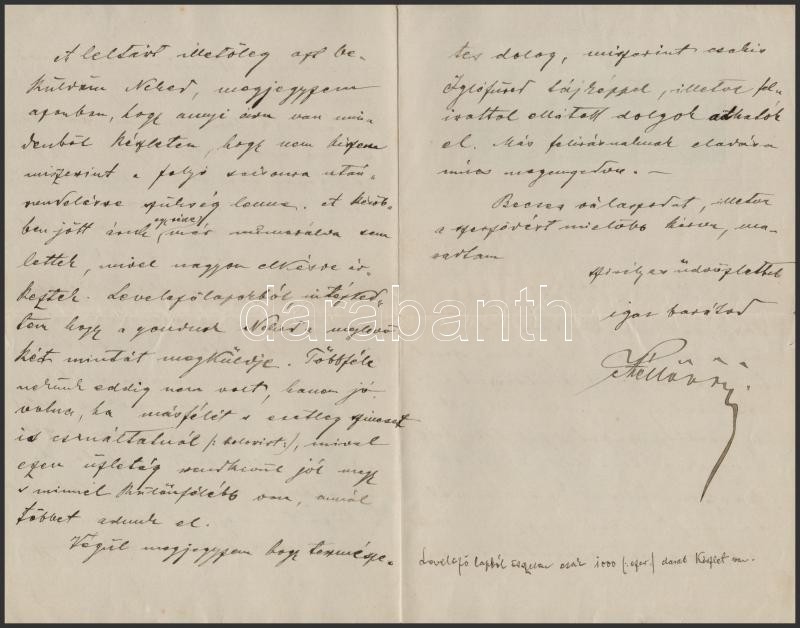 A leltárt illetőleg azt be-
küldöm Neked, megjegyzem
azonban, hogy annyi áru van min-
denből készleten, hogy nem hiszem
miszerint a folyó saisonra után-
rendelésre szükség lenne. A később-
ben jött áruk már numerálva sem
lettek, mivel nagyon elkésve ér-
keztek. Levelezőlapokból intézked-
tem hogy a gondnok Neked a meglevő
két mintát megküldje. Többféle
nekünk eddig nem volt, hanem jó
volna, ha másfélét s esetleg színeset
is csináltatnál (: kolorist :), mivel
ezen üzletág rendkívül jól megy
s minnél különfélébb van, annál
többet adunk el.
Végül megjegyzem hogy természe-
tes dolog, miszerint csakis
Iglófüred tájképpel, illetve fel-
irattal ellátott dolgok adhatók
el. Más feliratuaknak eladása
nincs megengedve. —
Becses válaszodat, illetve
a szerződést mielőbb kérve, ma-
radtam
szívélyes üdvözlettel
igaz barátod
Levelező lapból csak 1000 (: ezer :) darab készlet van.
darabanth